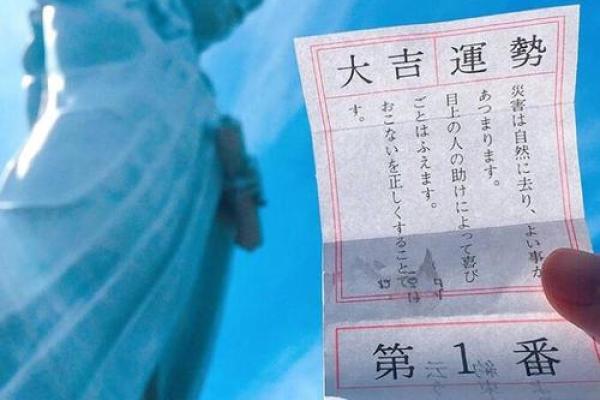 運勢
大吉
災害は自然に去り、よい事が
あつまります。
目上の人の助けによって喜び
ごとはふえます。
おこないを正しくすることで
す。
第1番